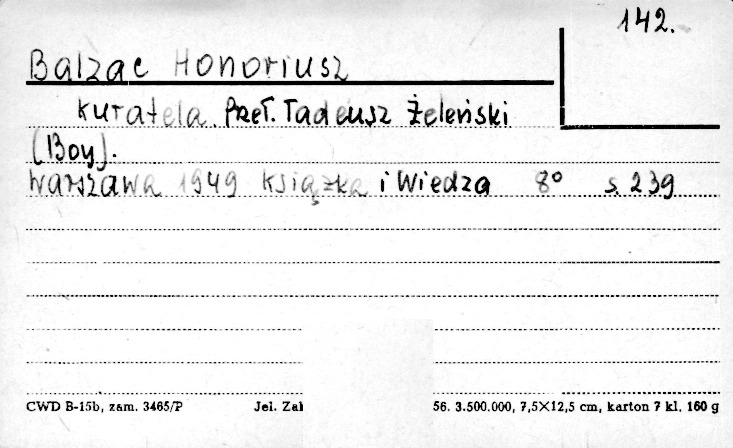 142.
Balzac Honoriusz
Kuratela. Przeł. Tadeusz Żeleński
(Boy).
Warszawa 1949 Książka i Wiedza 8° s. 239
CWD B-15b, zam. 3465/P Jel. Zał 56. 3.500.000, 7,5×12,5 cm, karton 7 kl. 160 g